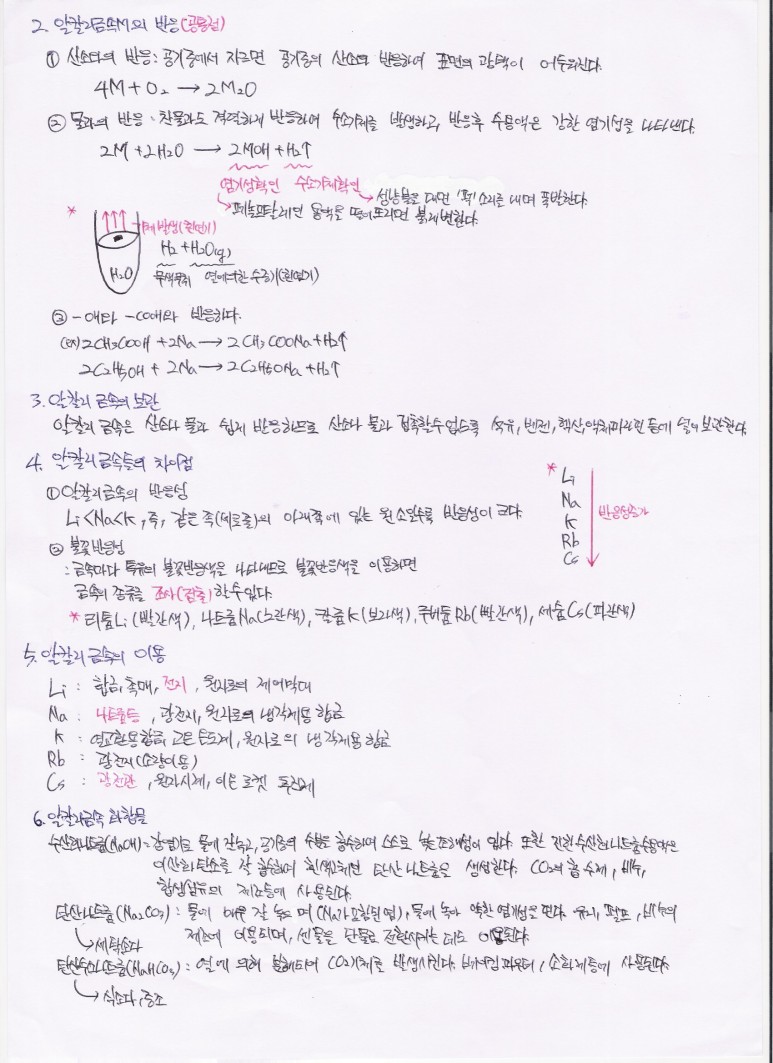 2. 알칼리금속M의 반응(공통점)
① 산소와의 반응: 공기중에서 자르면 공기중의 산소와 반응하여 표면의 광택이 어두워진다.
4M + O₂ → 2M₂O
② 물과의 반응 : 찬물과도 격렬하게 반응하여 수소기체를 발생하고, 반응후 수용액은 강한 염기성을 나타낸다.
2M + 2H₂O → 2MOH + H₂↑
염기성확인 수소기체확인 → 성냥불을 대면 '펑' 소리를 내며 폭발한다.
↳ 페놀프탈레인 용액을 떨어뜨리면 붉게변한다.
* 기체발생(흰연기)
H₂ + H₂O(g)
H₂O 무색무취 열에의한 수증기(흰연기)
③ -OH나 -COOH와 반응하다.
(ex) 2CH₃COOH + 2Na → 2CH₃COONa + H₂↑
2C₂H₅OH + 2Na → 2C₂H₅ONa + H₂↑
3. 알칼리 금속의 보관
알칼리 금속은 산소나 물과 쉽게 반응하므로 산소나 물과 접촉할수없도록 석유, 벤젠, 헥산, 액체파라핀 등에 넣어 보관한다.
4. 알칼리금속들의 차이점
① 알칼리금속의 반응성
Li<Na<K, 즉, 같은 족(세로줄)의 아래쪽에 있는 원소일수록 반응성이 크다.
* Li
Na
K
Rb
Cs
반응성증가
② 불꽃반응성
: 금속마다 특유의 불꽃반응색을 나타내므로 불꽃반응색을 이용하면
금속의 종류를 조사(검출)할수있다.
* 리튬Li(빨간색), 나트륨Na(노란색), 칼륨K(보라색), 루비듐Rb(빨간색), 세슘Cs(파란색)
5. 알칼리금속의 이용
Li : 합금, 촉매, 전지, 원자로의 제어막대
Na : 나트륨등, 광전지, 원자로의 냉각제용 합금
K : 열교환용합금, 고온온도계, 원자로의 냉각제용 합금
Rb : 광전지(소량이용)
Cs : 광전관, 원자시계, 이온로켓 추진제
6. 알칼리금속 화합물
수산화나트륨(NaOH) : 강염기로 물에 잘녹고, 공기중의 수분을 흡수하여 스스로 녹는 조해성이 있다. 또한 진한 수산화나트륨수용액은
이산화탄소를 잘 흡수하여 흰색고체인 탄산나트륨을 생성한다. CO₂의 흡수제, 비누,
합성섬유의 제조등에 사용된다.
탄산나트륨(Na₂CO₃) : 물에 매우 잘 녹으며(Na가 포함된염), 물에 녹아 약한 염기성을 띤다. 유리, 펄프, 비누의
↳ 세탁소다 제조에 이용되며, 센물을 단물로 전환시키는 데도 이용된다.
탄산수소나트륨(NaHCO₃) : 열에 의해 분해되어 CO₂기체를 발생시킨다. 베이킹파우더, 소화제등에 사용된다.
↳ 식소다, 중조